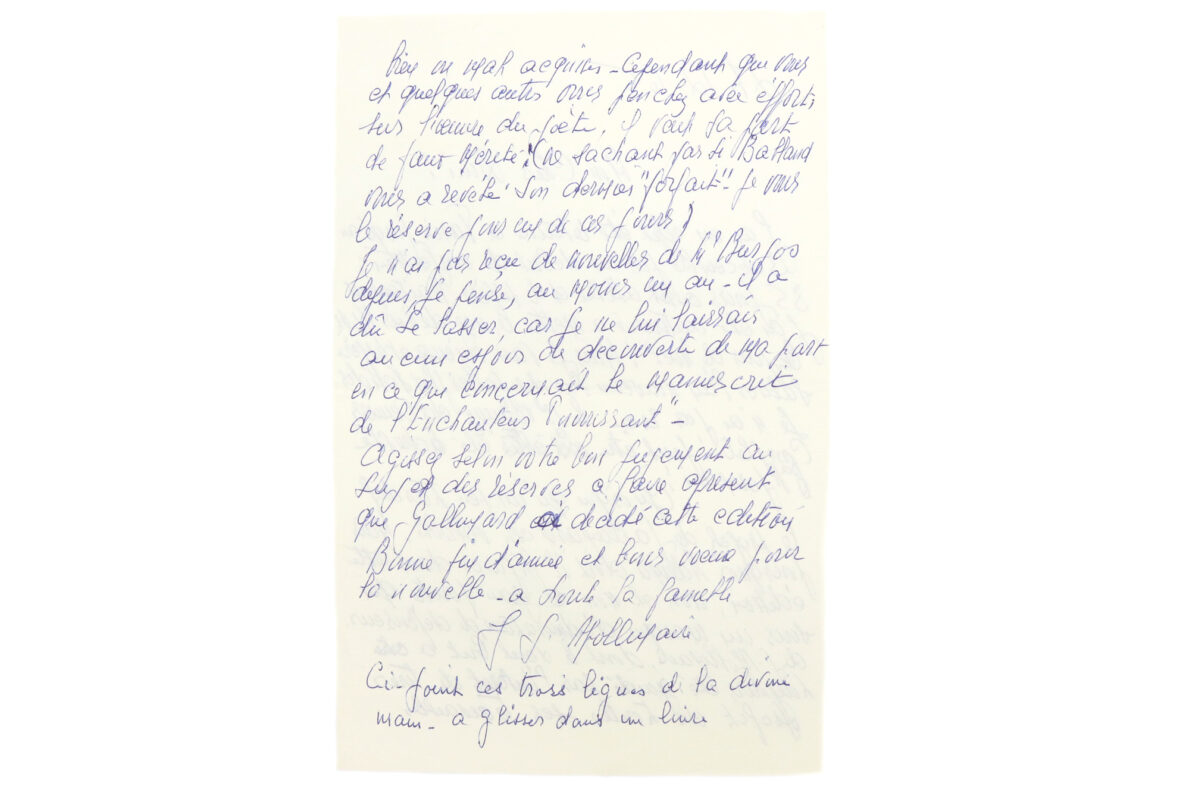 Bien ou mal acquises - Cependant que vous
et quelques autres vous penchez avec efforts
sur l'oeuvre du poète, il veut sa part
de faux mérite! (ne sachant pas si Balland
vous a révélé son dernier "forfait" - je vous
le réserve pour un de ces jours)
Je n'ai pas reçu de nouvelles de Mr Burgos
depuis, je pense, au moins un an - il a
dû se lasser, car je ne lui laissais
aucun espoir de decouverte de ma part
en ce que concernait le manuscrit
de l'"Enchanteur Pourrissant" -
Agissez selon votre bon jugement au
sujet des réserves a faire apresent
que Gallimard a décidé cette edition
Bonne fin d'année et bons voeux pour
la nouvelle - a toute la famille
J G Apollinaire
Ci-joint ces trois lignes d la divine
main - a glisser dans un livre